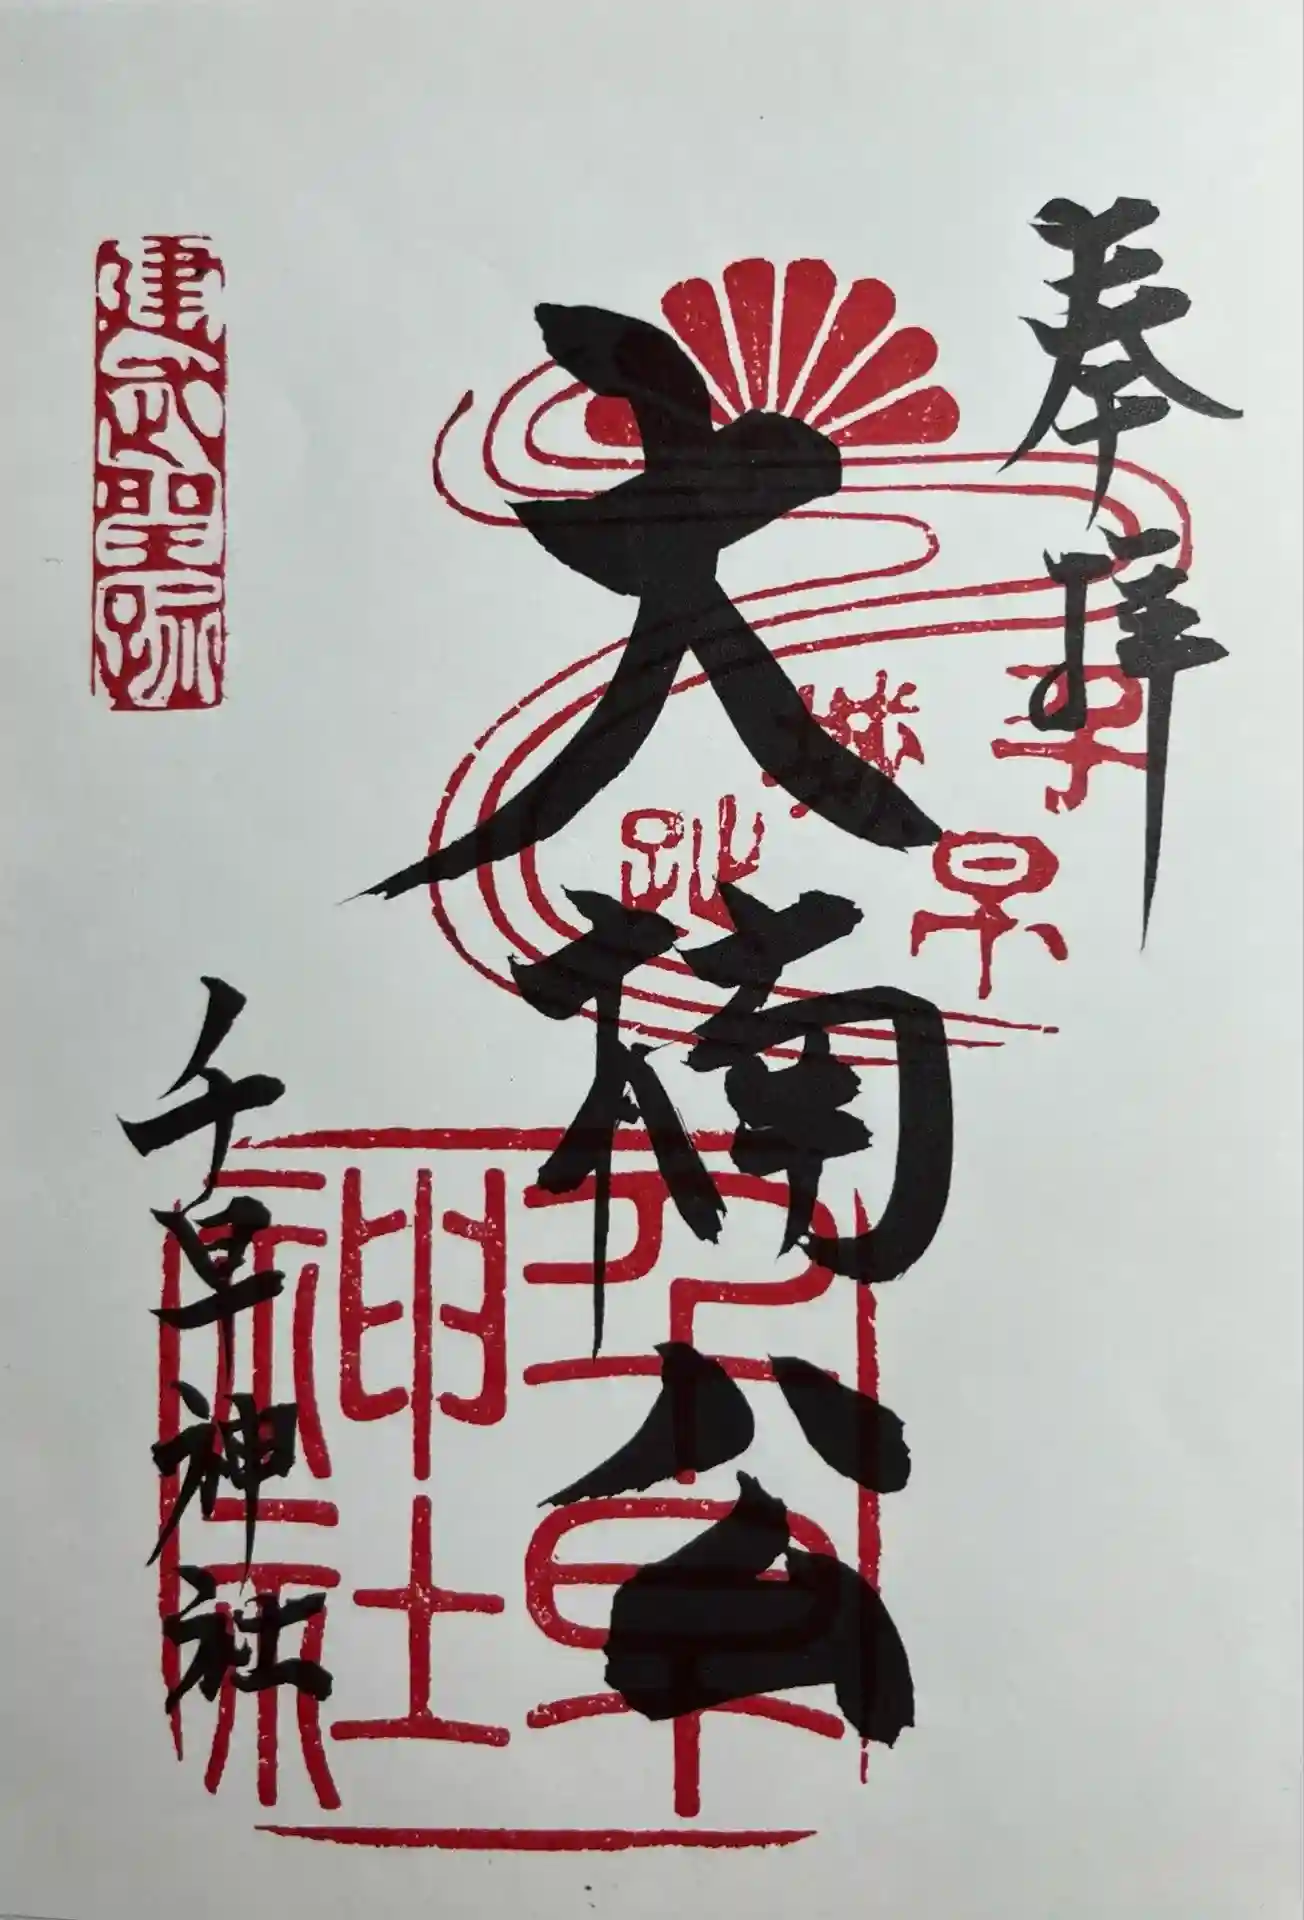 奉拝
千早城趾
大楠公
千早神社
千早神社
建武聖跡